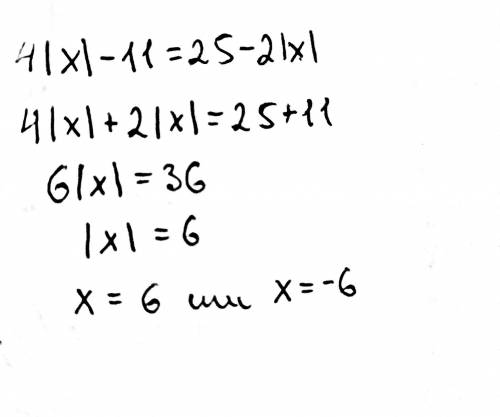 4|x|-11=25-2|x|
4|x|+2|x|=25+11
6|x|=36
|x|=6
x=6 или x=-6